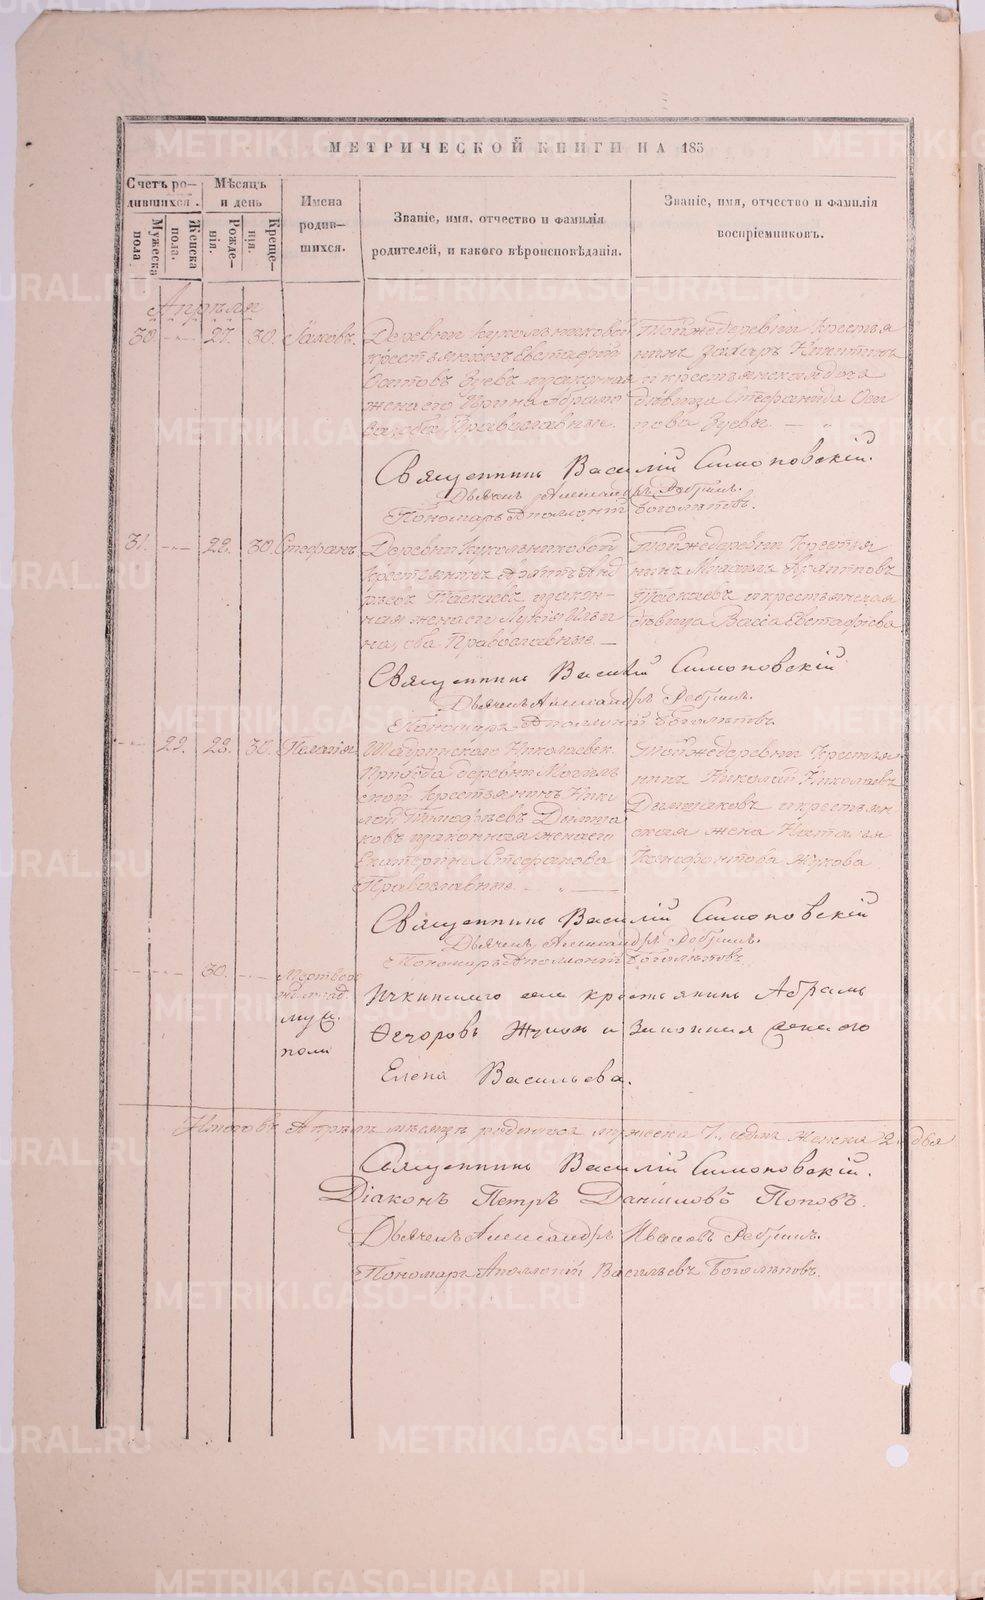 МЕТРИЧЕСКОЙ КНИГИ НА 185
Счетъ ро-
дившихся.
Мѣсяцъ
и день
Имена
родив-
шихся.
Званіе, имя, отчество и фамилія
родителей, и какого вѣроисповѣданія.
Званіе, имя, отчество и фамилія
воспріемниковъ.
Мужеска
пола
Женска
пола.
Рожде-
нія.
Креще-
нія.
Апрѣля
30. 27. 30. Іаковъ.
Деревни Кукольниковой
крестьянинъ Евстафій
Осиповъ Зуевъ
жена его Ирина Абрамо
ва, оба Православные.
Тойжедеревни Крестья
нинъ Захаръ Никитинъ
и крестьянская доче
дѣвица Стефанида Оси
пова Зуевы.
Священникъ Василій Симоновскій.
Дьячекъ Александръ Ребринъ.
Пономарь Аполлоній Боголѣповъ.
31. 28. 30. Стефанъ
Деревни Кукольниковой
Крестьянинъ Анд
рѣевъ Таскаевъ и закон-
ная жена его Лукія Ильи
на, оба Православные.
Тойжедеревни Крестья
нинъ Михаилъ
Таскаевъ и крестьянская
дѣвица Васса Евстафіева
Священникъ Василій Симоновскій
Дьячекъ Александръ Ребринъ.
Пономарь Аполлоній Боголѣповъ
22. 28. 30. Пелагія
Шадринскаго Николаевск.
Прихода деревни Могиль
ской Крестьянинъ Нико
лай Тимофѣевъ
ковъ и законная жена его
Екатерина Стефанова
Православные.
Тойжедеревни Крестья
нинъ Николай Николаевъ
и крестьян
ская жена Наталья
Ксенофонтова Жукова
Священникъ Василій Симоновскій
Дьячекъ Александръ Ребринъ.
Пономарь Аполлоній Боголѣповъ
30. Мертворо
муж.
пола
Ичкинскаго села крестьянинъ Абрамъ
Ѳедоровъ и Законная жена его
Елена Васильева.
Итого въ Апрѣлѣ мѣсяцѣ родилось мужеска женска два
Священникъ Василій Симоновскій.
Діаконъ Петръ Даниловъ Поповъ.
Дьячекъ Александръ Ивановъ Ребринъ.
Пономарь Аполлоній Васильевъ Боголѣповъ.
METRIKI.GASO-URAL.RU